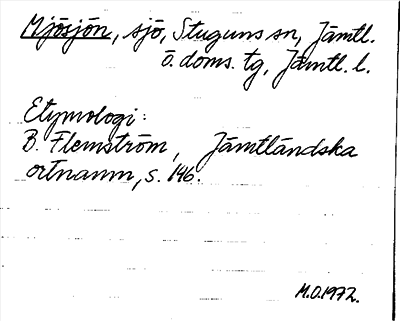 Mjösjön, sjö, Stuguns sn, Jämtl.
ö. doms. tg, Jämtl. l.
Etymologi:
B. Flemström, Jämtländska
ortnamn, s. 146.
M.O.1972.